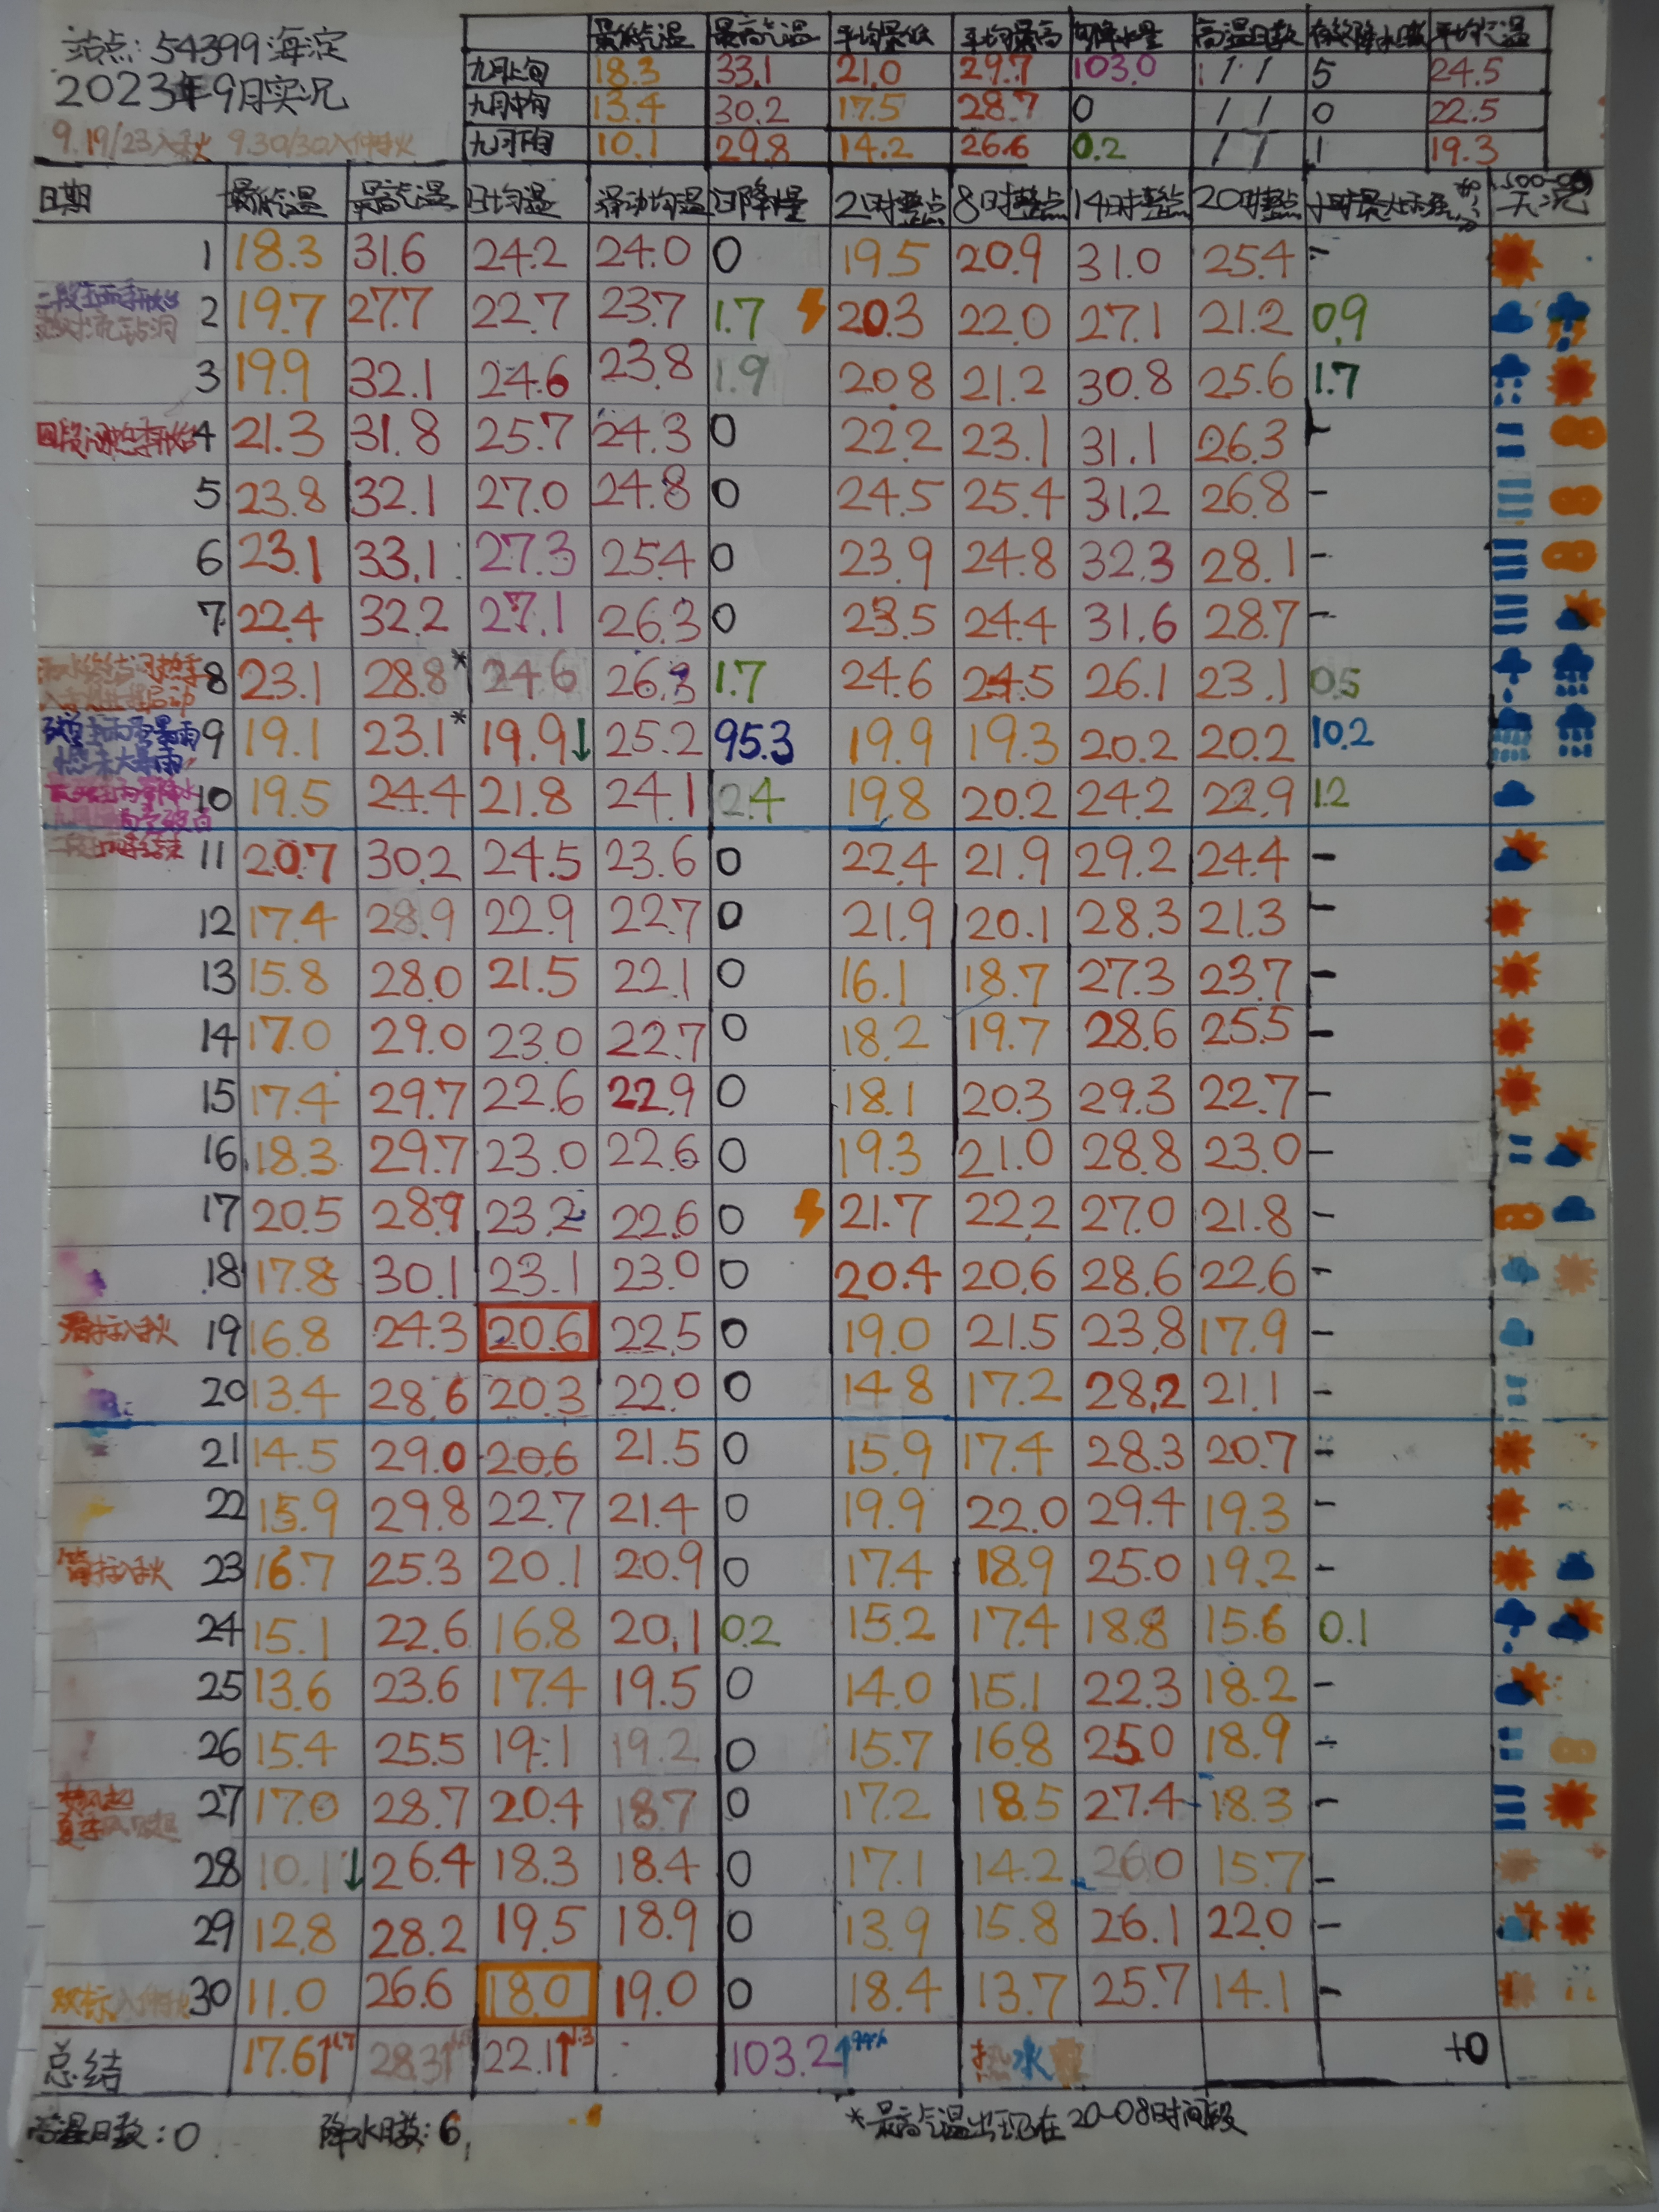 站点: 54399 海淀
2023年9月实况
9.19/23入秋 9.30/30入仲秋
最低气温 最高气温 平均最低 平均最高 总降水量 高温日数 有效降水日数 平均气温
九月上旬 18.3 33.1 21.0 29.7 103.0 / / 5 24.5
九月中旬 13.4 30.2 17.5 28.7 0 / / 0 22.5
九月下旬 10.1 29.8 14.2 26.6 0.2 / / 1 19.3
日期 最低气温 最高气温 日均温 滑动均温 日降水量 21时整点 8时整点 14时整点 20时整点 天况
1 18.3 31.6 24.2 24.0 0 19.5 20.9 31.0 25.4 -
2 19.7 27.7 22.7 23.7 1.7 20.3 22.0 27.1 21.2 0.9
3 19.9 32.1 24.6 23.8 1.9 20.8 21.2 30.8 25.6 1.7
4 21.3 31.8 25.7 24.3 0 22.2 23.1 31.1 26.3 -
5 23.8 32.1 27.0 24.8 0 24.5 25.4 31.2 26.8 -
6 23.1 33.1 27.3 25.4 0 23.9 24.8 32.3 28.1 -
7 22.4 32.2 27.1 26.3 0 23.5 24.4 31.6 28.7 -
8 23.1 28.8* 24.6 26.3 1.7 24.6 24.5 26.1 23.1 0.5
9 19.1 23.1* 19.9↓ 25.2 95.3 19.9 19.3 20.2 20.2 10.2
10 19.5 24.4 21.8 24.1 2.4 19.8 20.2 24.2 22.9 1.2
11 20.7 30.2 24.5 23.6 0 22.4 21.9 29.2 24.4 -
12 17.4 28.9 22.9 22.7 0 21.9 20.1 28.3 21.3 -
13 15.8 28.0 21.5 22.1 0 16.1 18.7 27.3 23.7 -
14 17.0 29.0 23.0 22.7 0 18.2 19.7 28.6 25.5 -
15 17.4 29.7 22.6 22.9 0 18.1 20.3 29.3 22.7 -
16 18.3 29.7 23.0 22.6 0 19.3 21.0 28.8 23.0 -
17 20.5 28.9 23.2 22.6 0 21.7 22.2 27.0 21.8 -
18 17.8 30.1 23.1 23.0 0 20.4 20.6 28.6 22.6 -
滑标入秋 19 16.8 24.3 20.6 22.5 0 19.0 21.5 23.8 17.9 -
20 13.4 28.6 20.3 22.0 0 14.8 17.2 28.2 21.1 -
21 14.5 29.0 20.6 21.5 0 15.9 17.4 28.3 20.7 -
22 15.9 29.8 22.7 21.4 0 19.9 22.0 29.4 19.3 -
简标入秋 23 16.7 25.3 20.1 20.9 0 17.4 18.9 25.0 19.2 -
24 15.1 22.6 16.8 20.1 0.2 15.2 17.4 18.8 15.6 0.1
25 13.6 23.6 17.4 19.5 0 14.0 15.1 22.3 18.2 -
26 15.4 25.5 19.1 19.2 0 15.7 16.8 25.0 18.9 -
27 17.0 28.7 20.4 18.7 0 17.2 18.5 27.4 18.3 -
28 10.1↓ 26.4 18.3 18.4 0 17.1 14.2 26.0 15.7 -
29 12.8 28.2 19.5 18.9 0 13.9 15.8 26.1 22.0 -
双标入仲秋 30 11.0 26.6 18.0 19.0 0 18.4 13.7 25.7 14.1 -
总结 17.6↑1.7 28.3↑ 22.1↑1.3 103.2↑ 热水 +0
高温日数: 0 降水日数: 6 *最高气温出现在20-08时间段